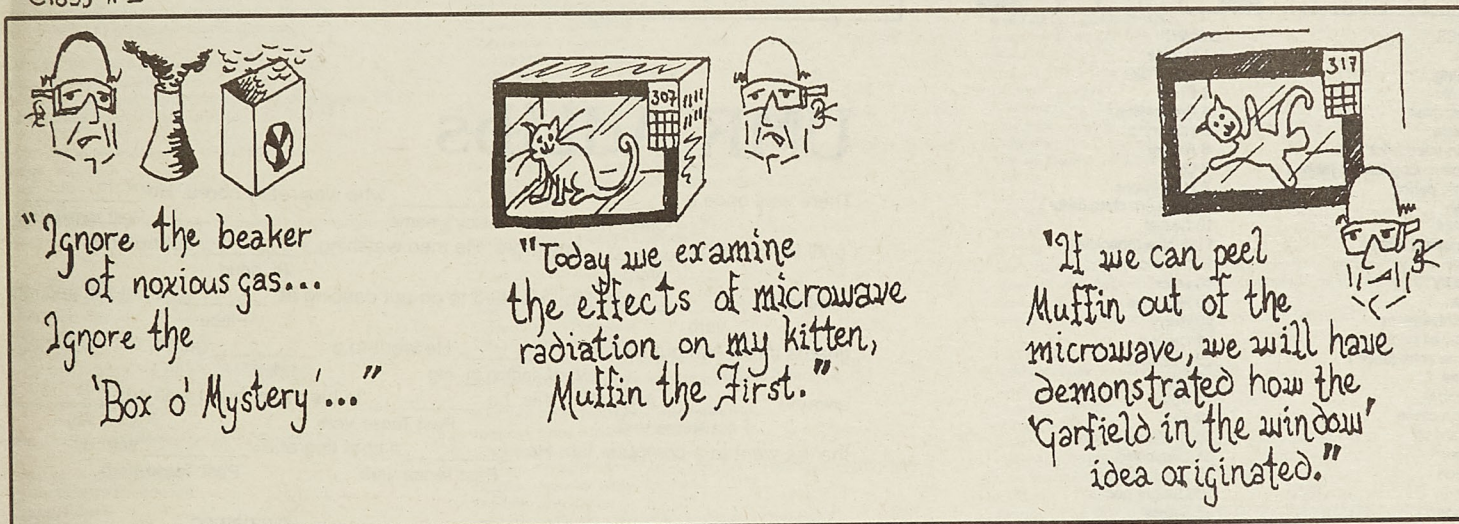 "Ignore the beaker
of noxious gas...
Ignore the
'Box o' Mystery'..."
307
"Today we examine
the effects of microwave
radiation on my kitten,
Muffin the First."
317
"If we can peel
Muffin out of the
microwave, we will have
demonstrated how the
'Garfield in the window'
idea originated."